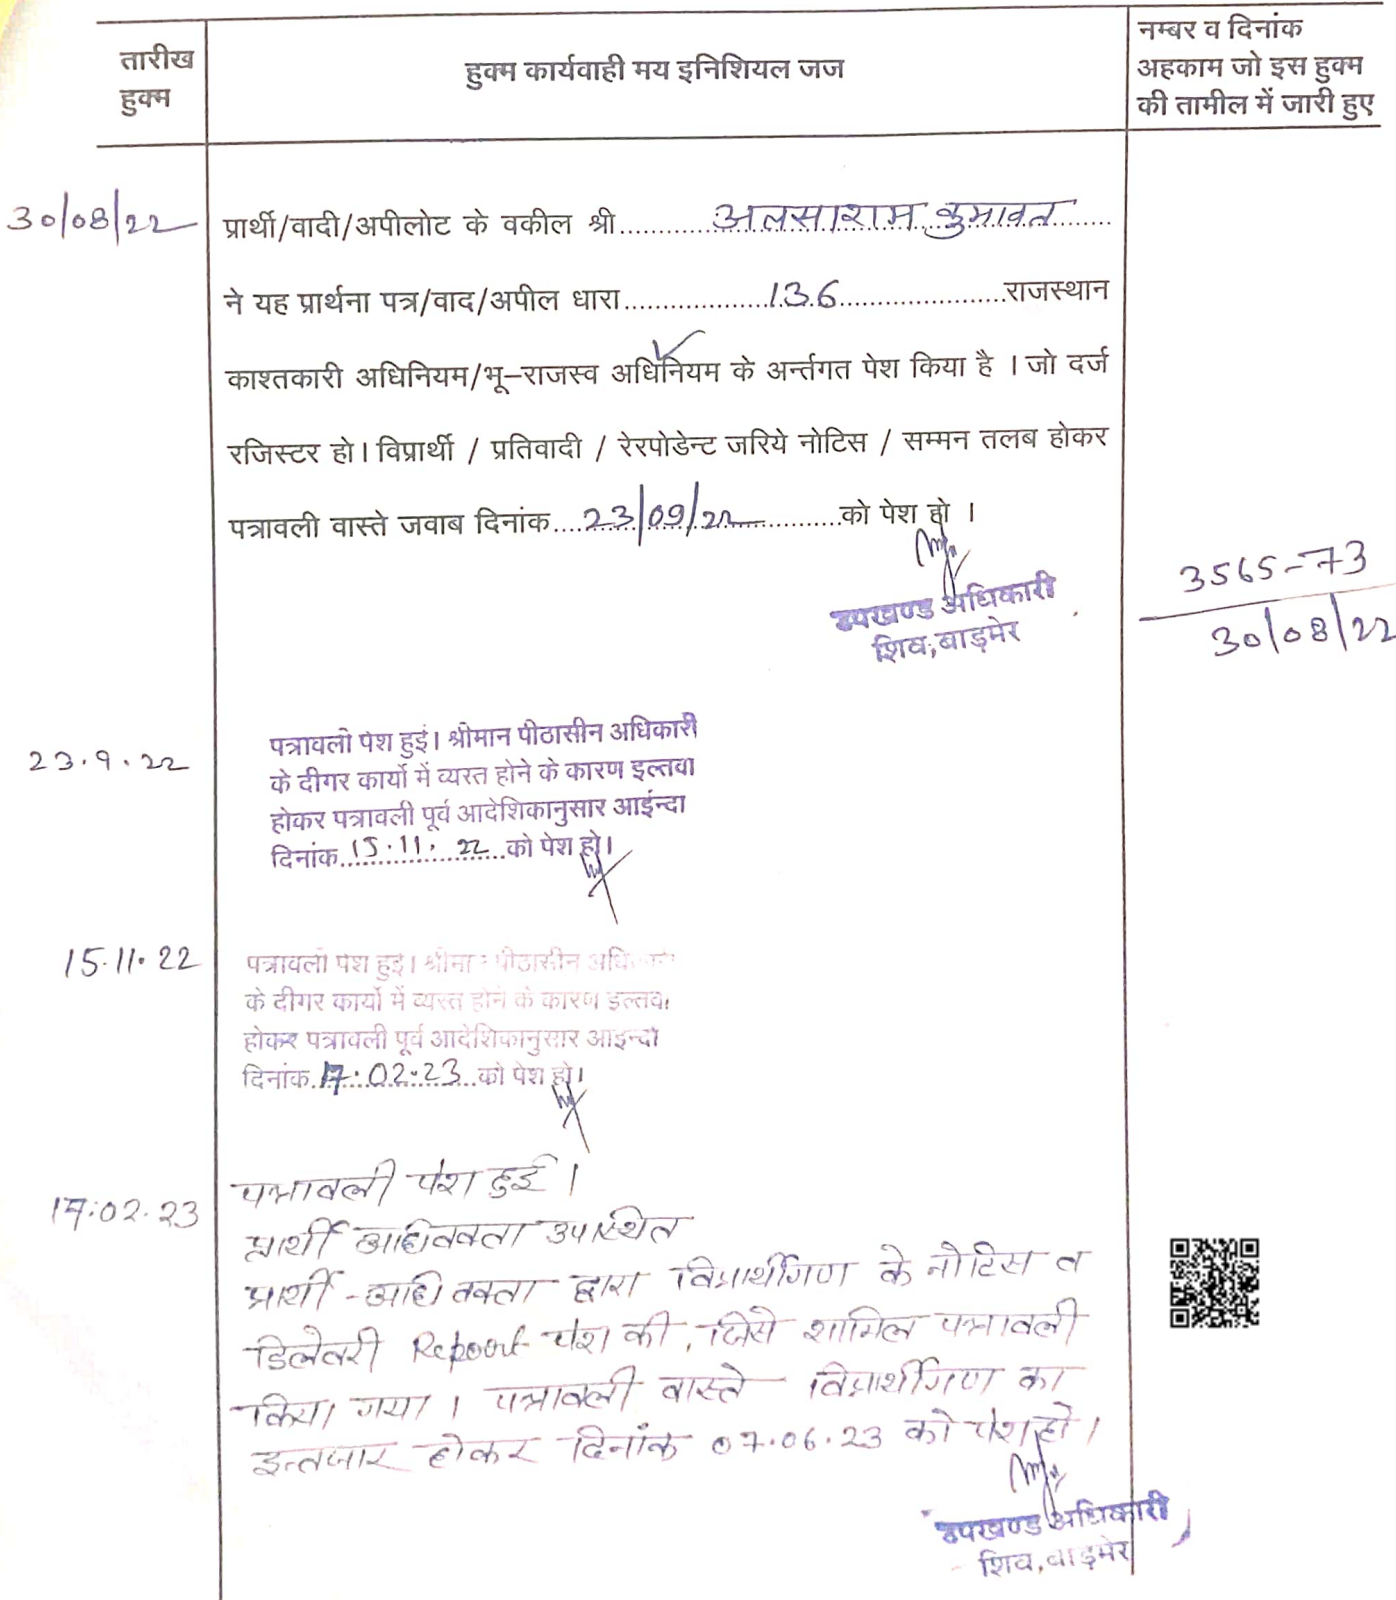 तारीख
हुक्म
हुक्म कार्यवाही मय इनिशियल जज
नम्बर व दिनांक
अहकाम जो इस हुक्म
की तामील में जारी हुए
30/08/22
प्रार्थी/वादी/अपीलोट के वकील श्री अलसाराम कुमावत
ने यह प्रार्थना पत्र/वाद/अपील धारा 136 राजस्थान
काश्तकारी अधिनियम/भू-राजस्व अधिनियम के अर्न्तगत पेश किया है । जो दर्ज
रजिस्टर हो। विप्रार्थी / प्रतिवादी / रेरपोडेन्ट जरिये नोटिस / सम्मन तलब होकर
पत्रावली वास्ते जवाब दिनांक 23/09/22 को पेश हो ।
उपखण्ड अधिकारी
शिव, बाड़मेर
3565-73
30/08/22
23.9.22
पत्रावली पेश हुई। श्रीमान पीठासीन अधिकारी
के दीगर कार्यो में व्यस्त होने के कारण इल्तवा
होकर पत्रावली पूर्व आदेशिकानुसार आईन्दा
दिनांक 15.11.22 को पेश हो।
15.11.22
पत्रावली पेश हुई। श्रीमान पीठासीन अधिकारी
के दीगर कार्यो में व्यस्त होने के कारण इल्तवा
होकर पत्रावली पूर्व आदेशिकानुसार आइन्दा
दिनांक 17.02.23 को पेश हो।
17.02.23
पत्रावली पेश हुई ।
प्रार्थी अधिवक्ता उपस्थित
प्रार्थी-अधिवक्ता द्वारा विप्रार्थीगण के नोटिस व
डिलेवरी Report पेश की, जिसे शामिल पत्रावली
किया गया । पत्रावली वास्ते विप्रार्थीगण का
इन्तजार होकर दिनांक 07.06.23 को पेश हो।
उपखण्ड अधिकारी
शिव, बाड़मेर